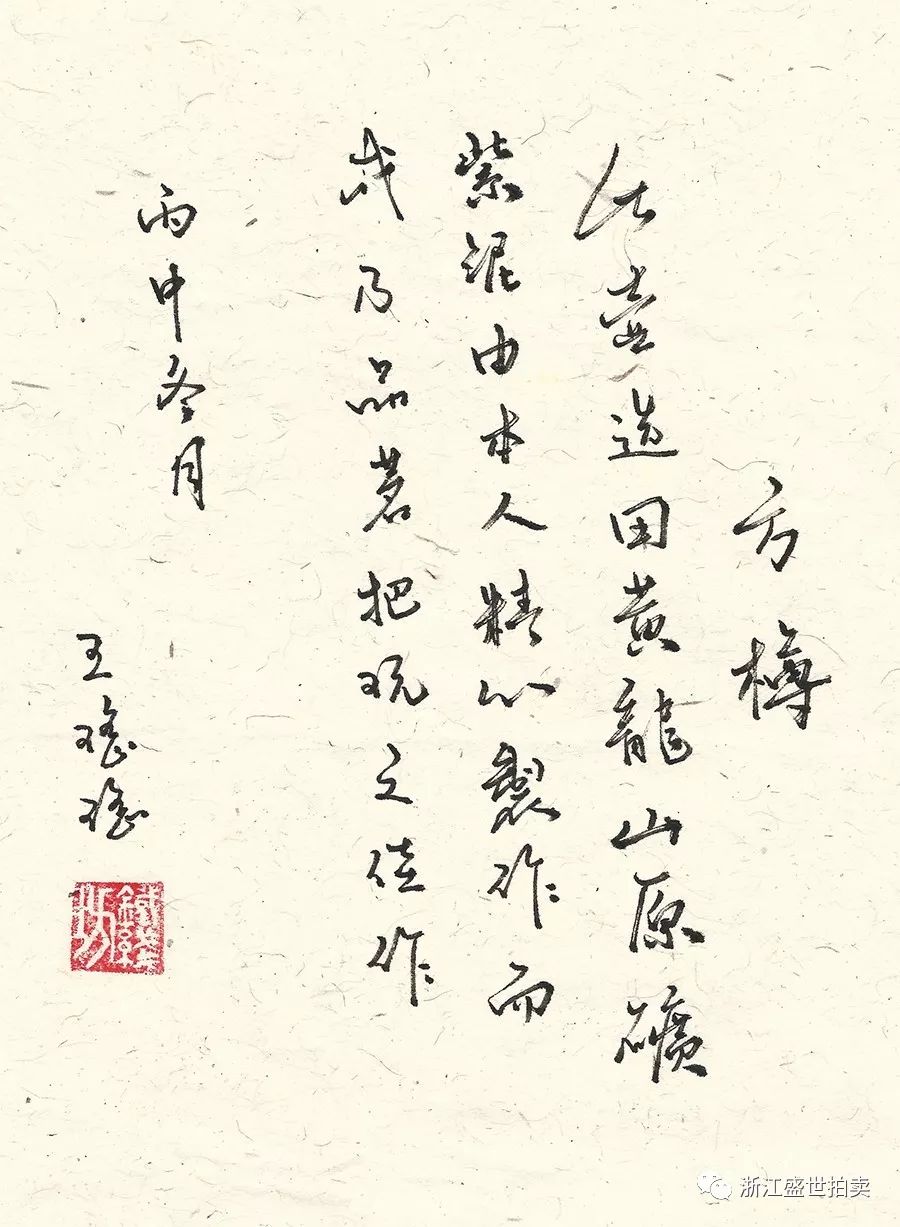 方樽
此壺选用黄龍山原礦
紫泥由本人精心製作而
成乃品茗把玩之佳作
丙申冬月
王瑤瑤
浙江盛世拍卖